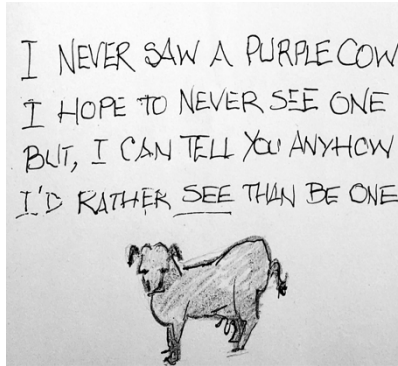 I NEVER SAW A PURPLE COW
I HOPE TO NEVER SEE ONE
BUT, I CAN TELL YOU ANYHOW
I'D RATHER SEE THAN BE ONE